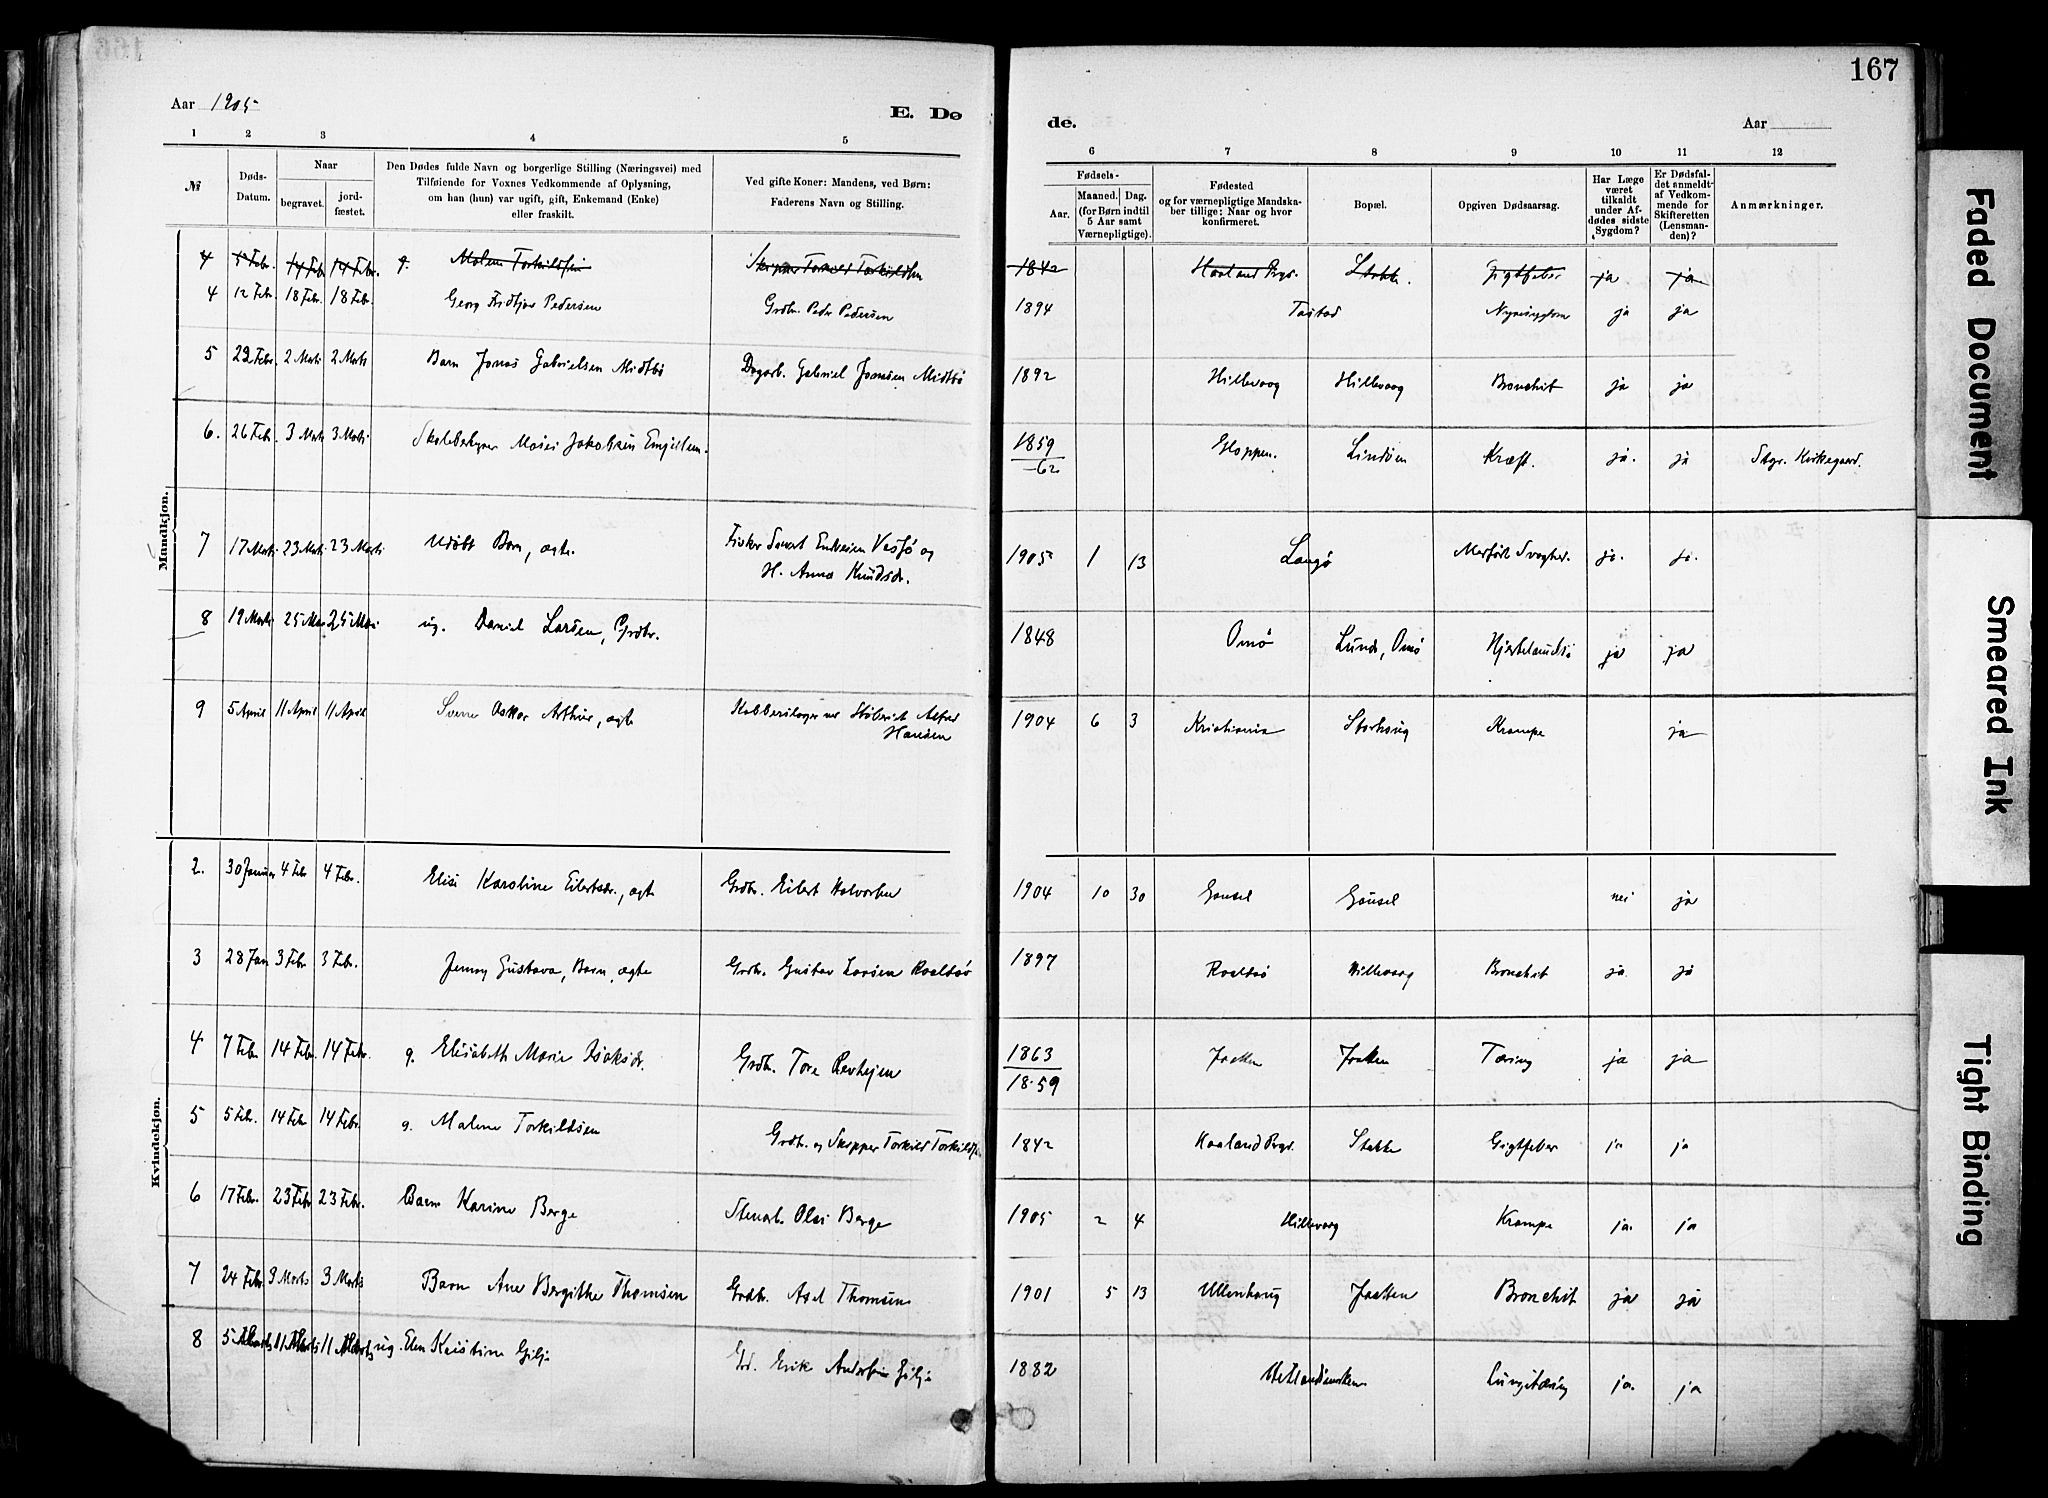 167
Aar 1905
E. Dø
de.
Aar
1 2 3 4 5
6 7 8 9 10 11 12
№
Døds-Datum.
Naar
begravet.
jordfæstet.
Den Dødes fulde Navn og borgerlige Stilling (Næringsvei) med
Tilføiende for Voxnes Vedkommende af Oplysning,
om han (hun) var ugift, gift, Enkemand (Enke)
eller fraskilt.
Ved gifte Koner: Mandens, ved Børn:
Faderens Navn og Stilling.
Fødsels-
Aar.
Maaned. Dag.
(for Børn indtil
5 Aar samt
Værnepligtige).
Fødested
og for værnepligtige Mandska-
ber tillige: Naar og hvor
konfirmeret.
Bopæl.
Opgiven Dødsaarsag.
Har Læge
været
tilkaldt
under Af-
dødes sidste
Sygdom?
Er Dødsfal-
det anmeldt
af Vedkom-
mende for
Skifteretten
(Lensman-
den)?
Anmærkninger.
Mandkjøn.
4 Febr. 14 Febr 14 Febr. g. Malene Torkildsen Skipper Torkild Torkildsen 1842 Haaland Prgj. Stokke. Gigtfeber ja ja
4 12 Febr. 18 Febr. 18 Febr. Georg Fridtjov Pedersen Grdbr. Peder Pedersen 1894 Tastad Nyresygdom ja ja
5 Febr. 2 Marts 2 Marts Barn Jonas Gabrielsen Midtbø Dagarb. Gabriel Jonasen Midtbø 1892 Hillevaag Hillevaag Bronchit ja ja
6. 26 Febr. 3 Marts 3 Marts Skolebestyrer Mosei Jakobsen 1859 -62 Gloppen. Lindøen Kræft. ja. ja Stgr. Kirkegaard.
7 17 Marts 23 Marts 23 Marts Udøbt Barn, ægte. Fisker og H. Anna Knudsdr. 1905 1 13 Langø ja. ja.
8 19 Marts 25 Marts 25 Marts ug. Daniel Larsen, Grdbr. 1848 Omø Lunde, Omø ja ja
9 5 April 11 April 11 April Sverre Oskar Arthur, ægte Kobberslager Alfred Hansen 1904 6 3 Kristiania Storhaug Krampe ja
Kvindekjøn.
2. 30 Januar 4 Febr 4 Febr. Elise Karoline Eilertsdr., ægte Grdbr. Eilert Halvorsen 1904 10 30 Gausel Gausel nei ja
3 28 Jan 3 Febr 3 Febr. Jenny Gustava, Barn, ægte Grdbr. Gustav Larsen Roaldsø 1897 Roaldsø Hillevaag Bronchit ja. ja
4 7 Febr. 14 Febr. 14 Febr. g. Elisabeth Marie Isaksdr. Grdbr. Tore Revhejen 1863 18-59 Jaatten Jaatten Tæring ja ja
5 5 Febr. 14 Febr 14 Febr. g. Malene Torkildsen Grdbr. og Skipper Torkild Torkildsen 1842 Haaland Prgj. Stokke Gigtfeber ja ja
6 17 Febr. 23 Febr 23 Febr. Barn Karine Berge Stenarb. Olai Berge 1905 2 4 Hillevaag Krampe ja. ja
7 24 Febr. 3 Marts 3 Marts Barn Ane Bergithe Thomsen Grdbr. Axel Thomsen 1901 5 13 Ullenhaug Jaatten Bronchit ja ja
8 5 Marts 11 Marts 11 Marts ug. Elen Kristine Gilje Gd. Erik Andersen Gilje 1882 Hetlandsmarken Lungetæring ja. ja
Faded Document
Smeared Ink
Tight Binding